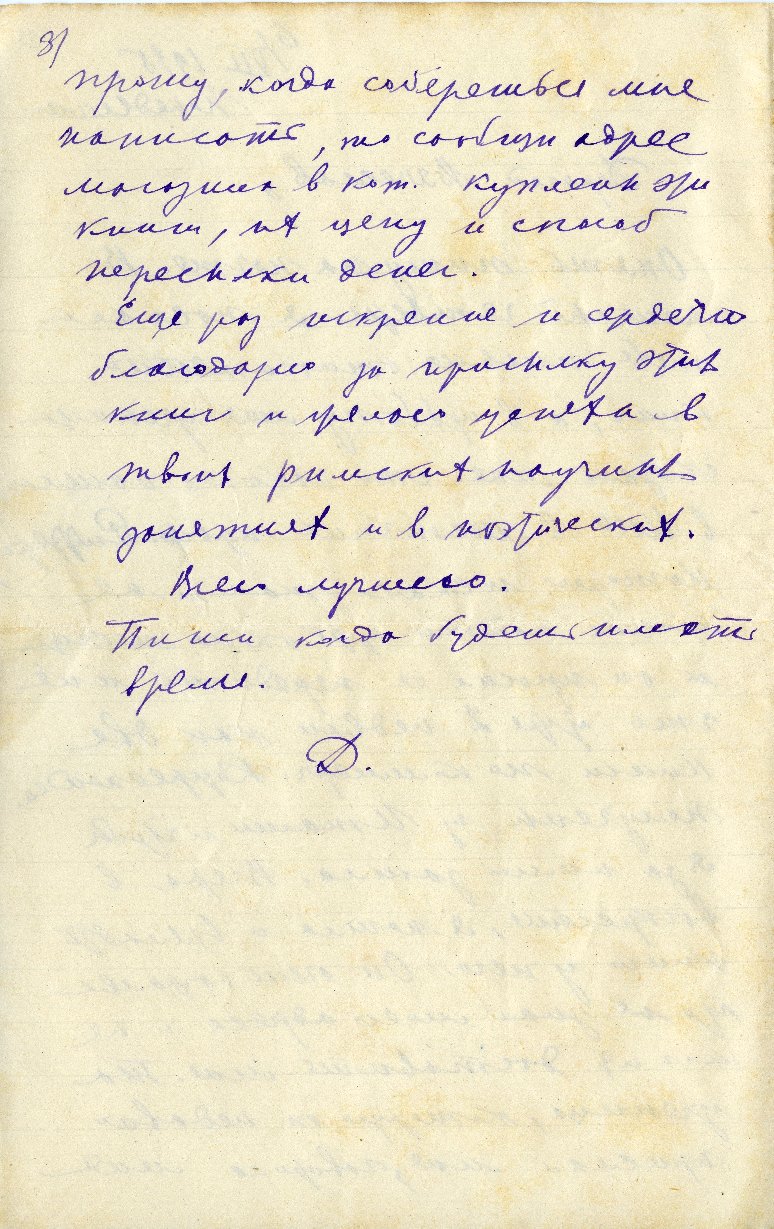 3/
прошу, когда соберешься мне
написать, то сообщи адрес
магазина в кот. куплены эти
книги, их цену и способ
пересылки денег.
Еще раз искренне и сердечно
благодарю за присылку этих
книг и желаю успеха в
твоих римских научных
занятиях и в поэтических.
Всего лучшего.
Пиши когда будешь иметь
время.
Д.